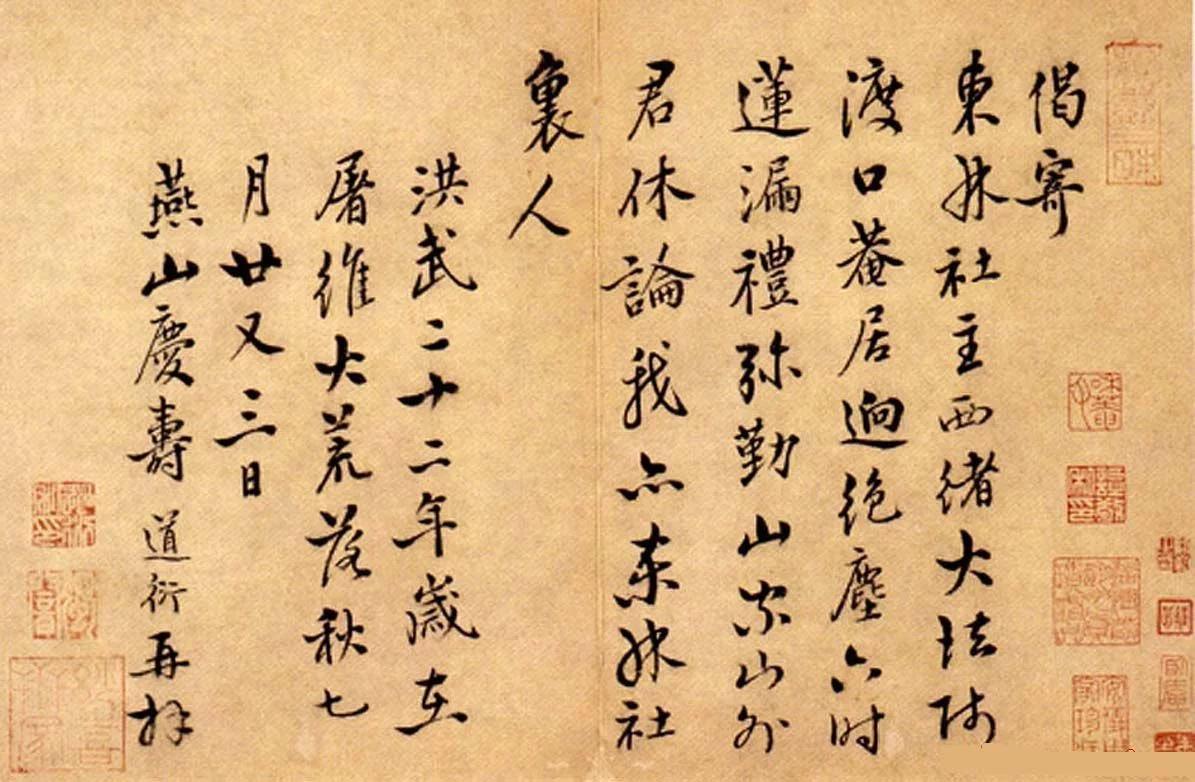 偈寄
東林社主西緒大法師
渡口菴居迥絕塵六时
蓮漏禮弥勤山宗山外
君休論我亦東林社
裏人
洪武二十二年歲在
屠維大荒落秋七
月廿又三日
燕山慶壽道衍再拜